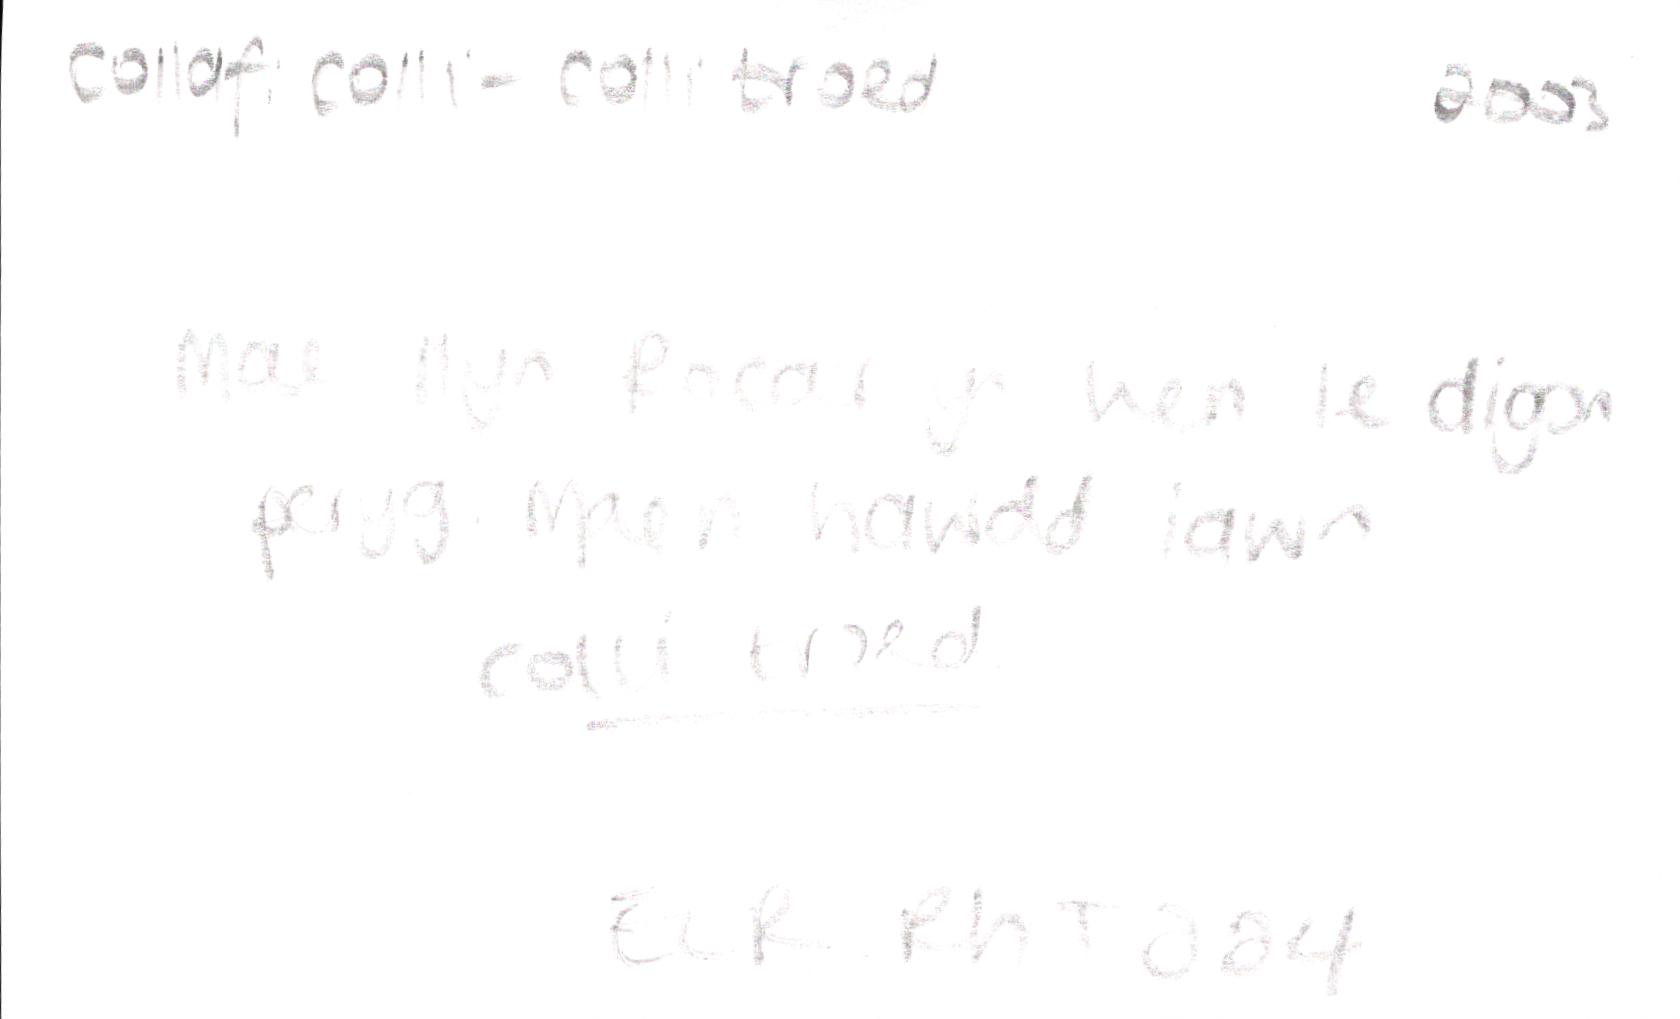 collaf: colli - colli troed 2003
Mae llyn Rocar yn hen le digon
peryg. Mae'n hawdd iawn
colli troed
ELR RhT 224